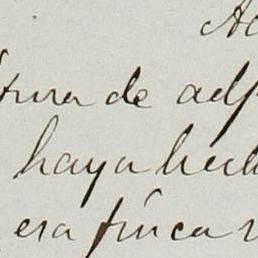 Ac
tura de adj
haya hech
esa finca